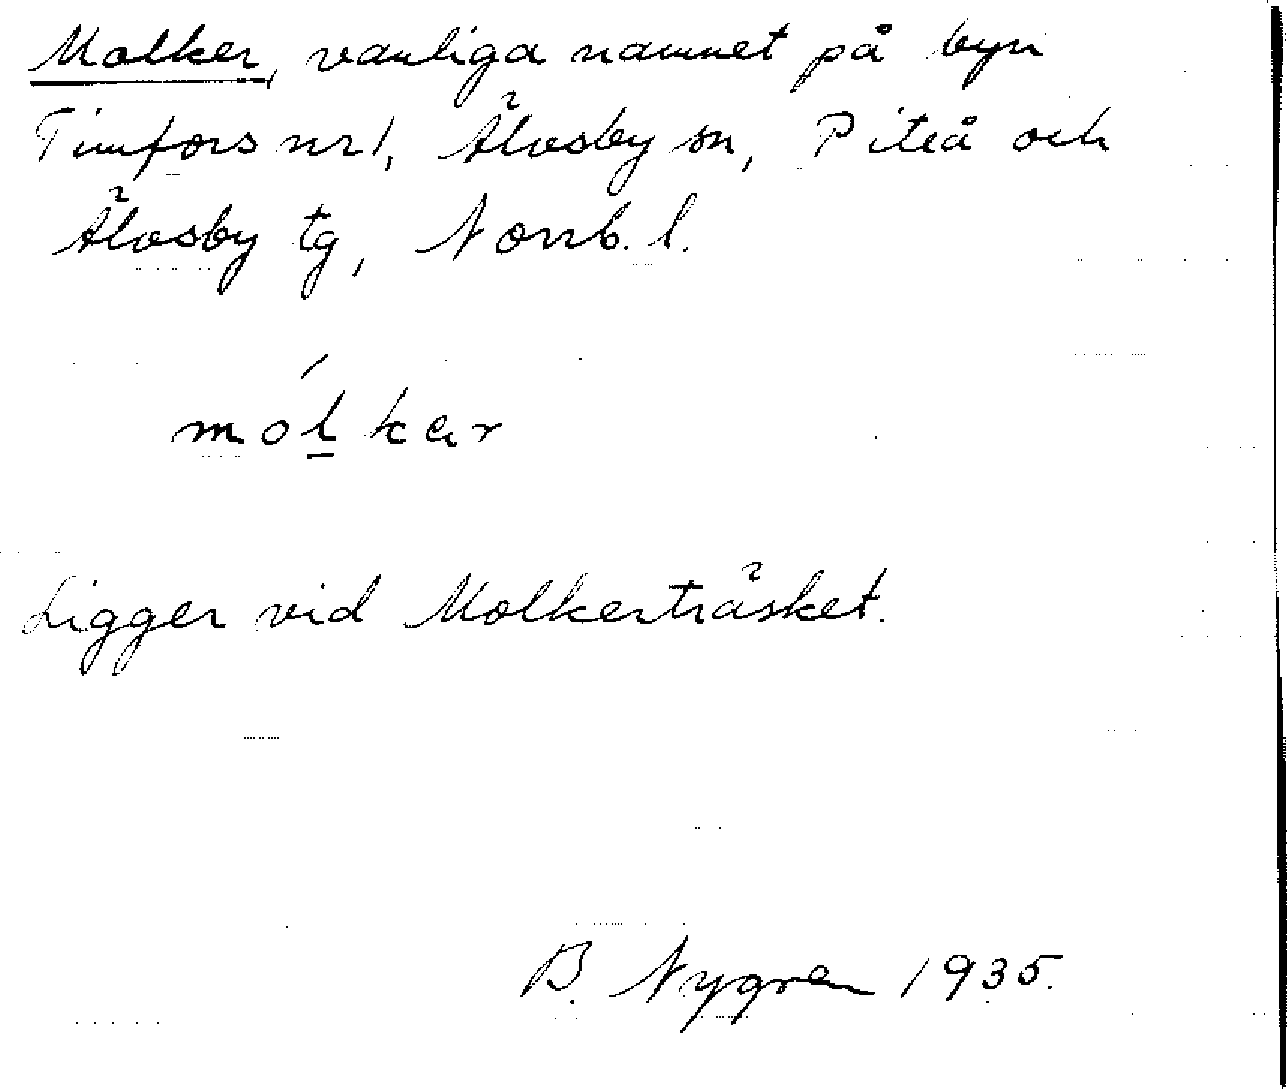 Molker, vanliga namnet på byn
Timfors nr 1, Älvsby sn, Piteå och
Älvsby tg, Norrb. l.
mólkar
Ligger vid Molkerträsket.
B. Nygren 1935.